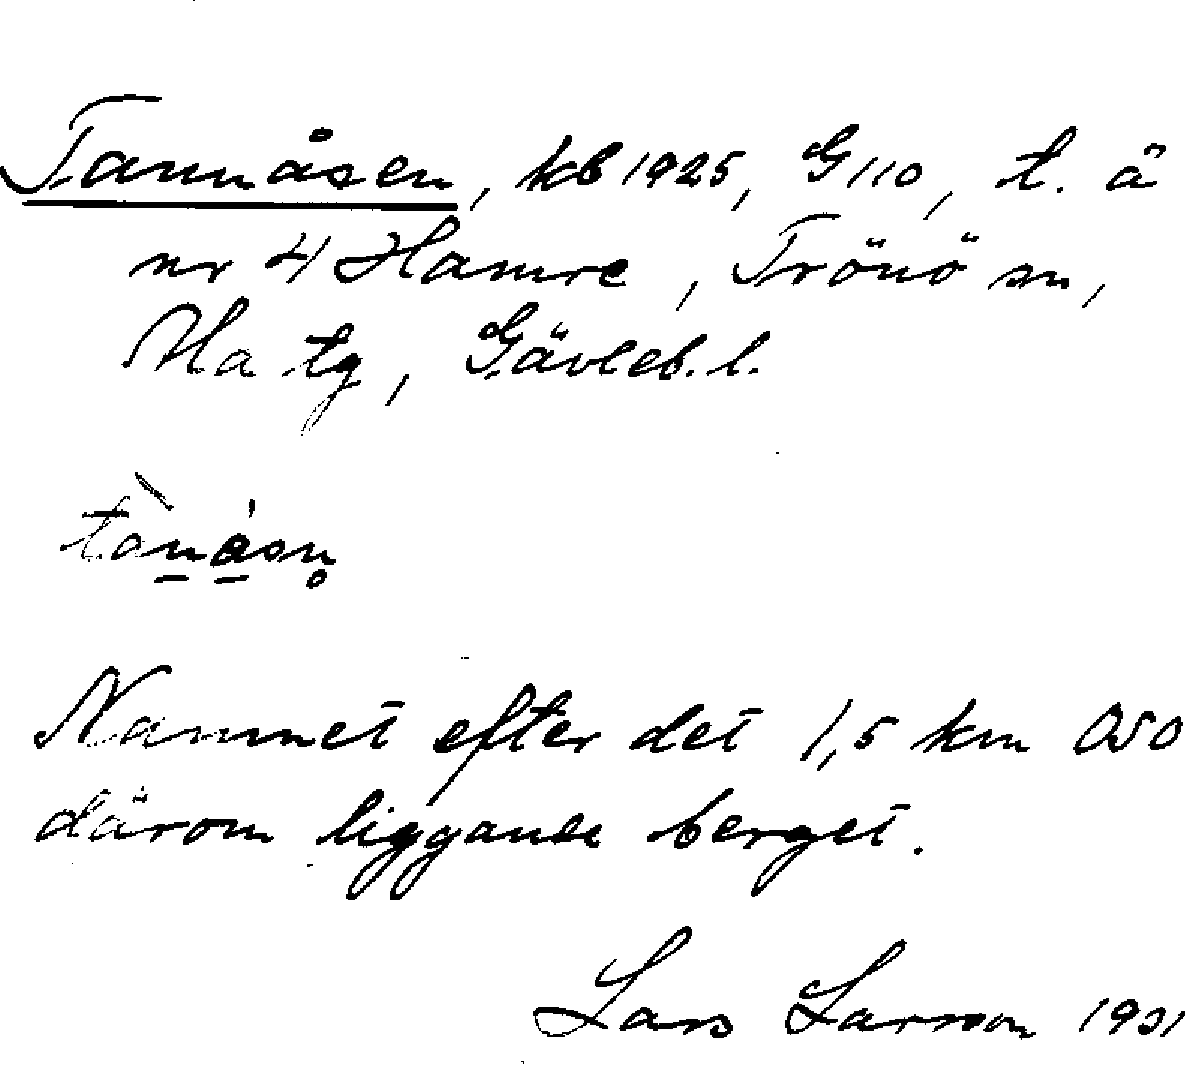 Tannåsen, kb 1925, G 110, t. ä
nr 4 Hamre, Trönö sn,
Ha tg, Gävleb. l.
Namnet efter det 1,5 km OSO
därom liggande berget.
Lars Larsson 1931